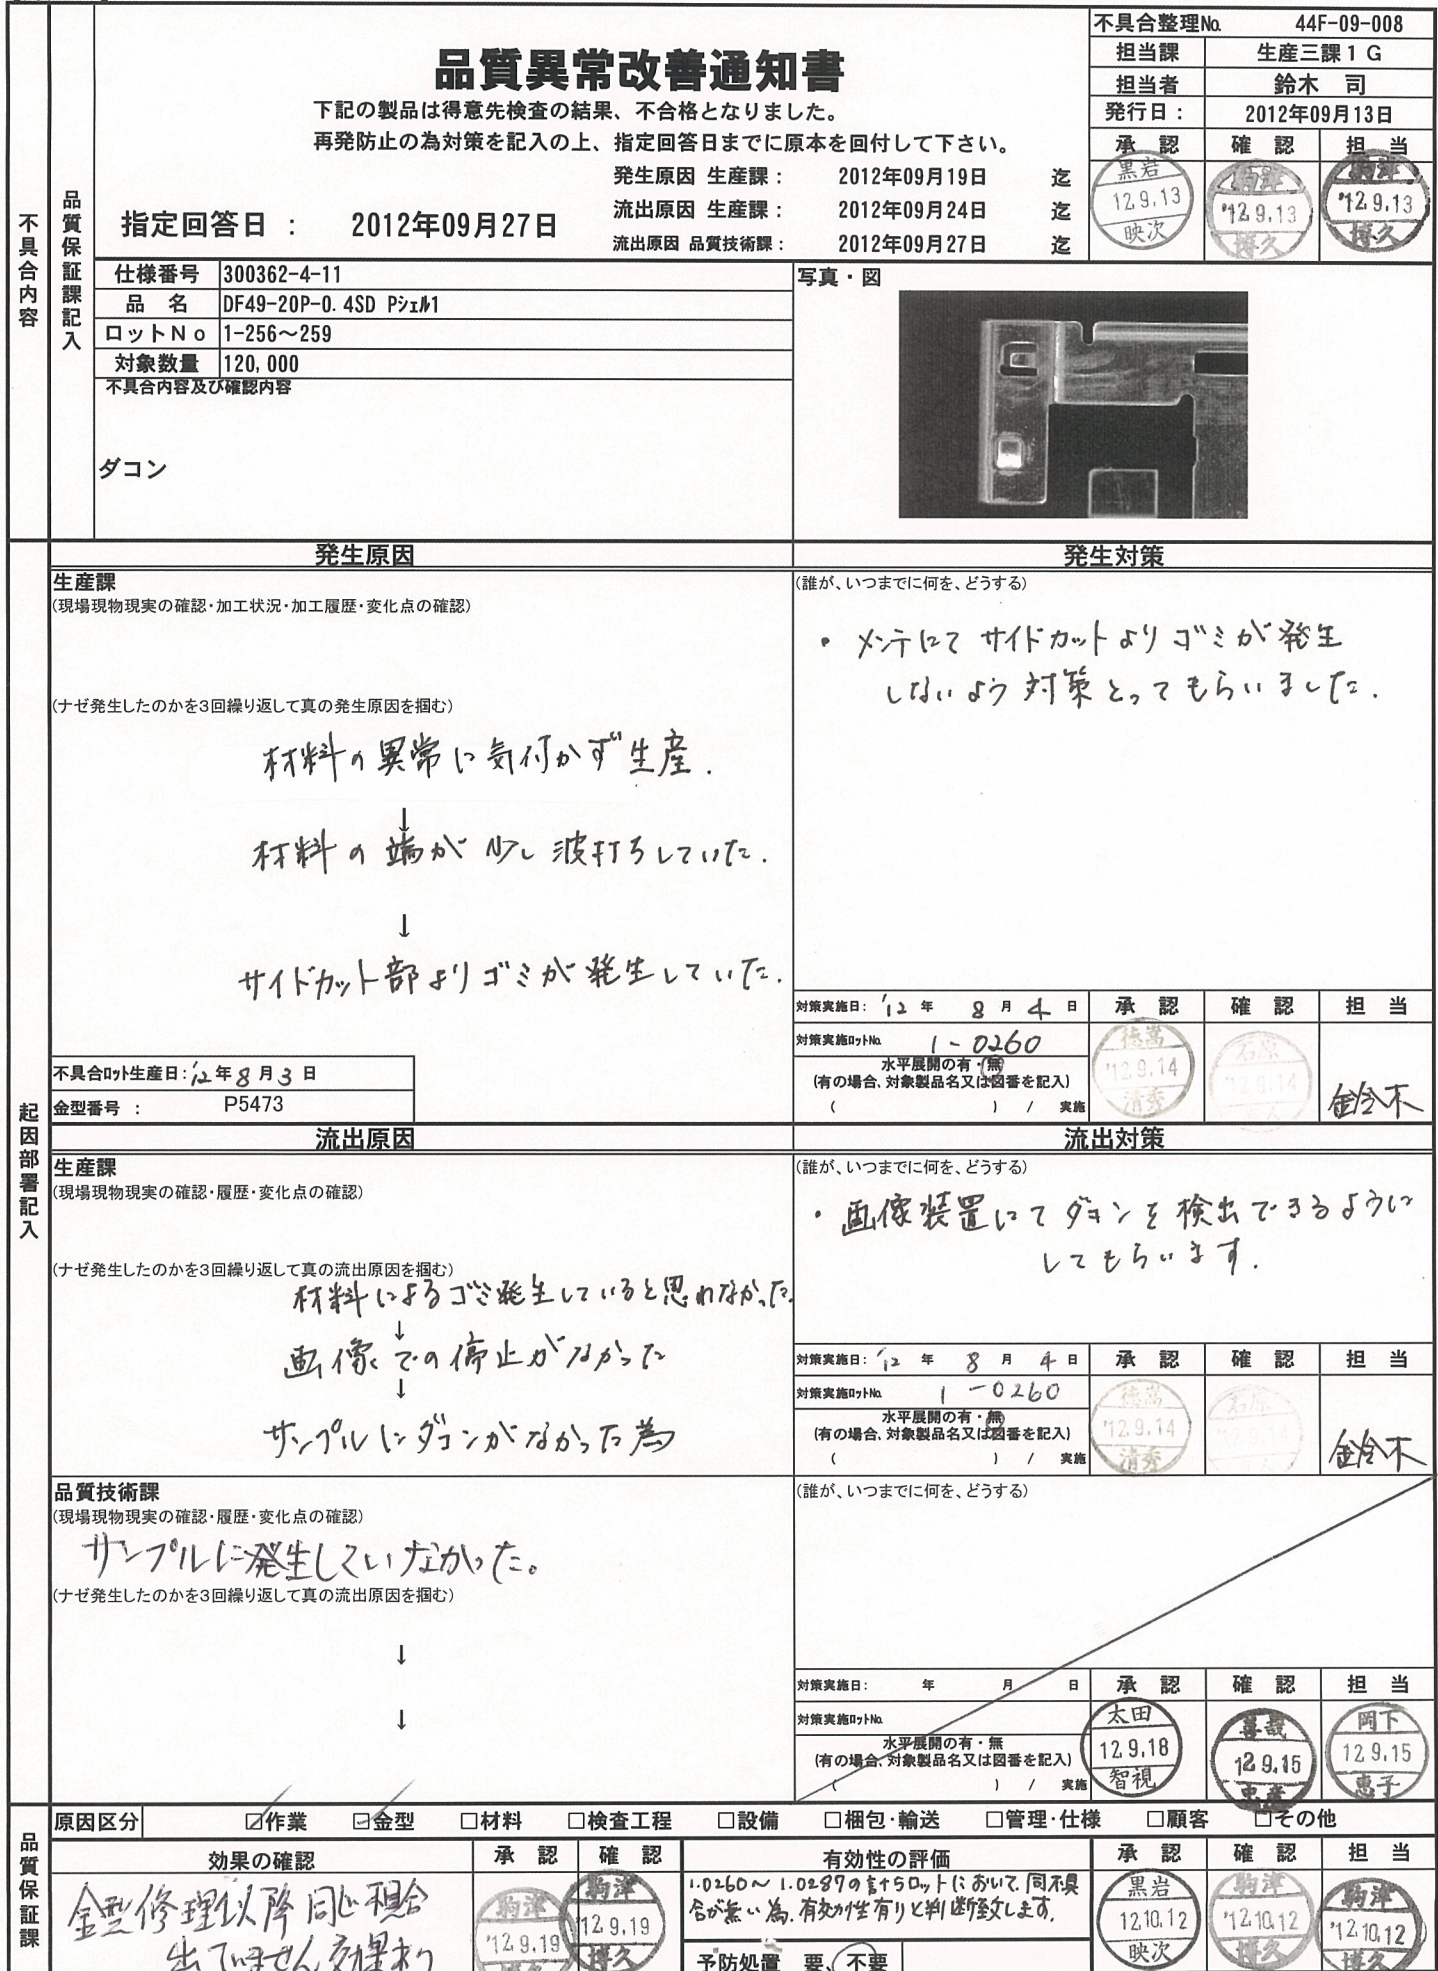 不具合整理No. 44F-09-008
担当課 生産三課1G
担当者 鈴木 司
発行日： 2012年09月13日
承認 確認 担当
黒岩 12.9.13 映次
駒津 '12.9.13 博久
駒津 '12.9.13 博久
品質異常改善通知書
下記の製品は得意先検査の結果、不合格となりました。
再発防止の為対策を記入の上、指定回答日までに原本を回付して下さい。
発生原因 生産課： 2012年09月19日 迄
流出原因 生産課： 2012年09月24日 迄
流出原因 品質技術課： 2012年09月27日 迄
指定回答日 ： 2012年09月27日
不具合内容
品質保証課記入
仕様番号 300362-4-11
品 名 DF49-20P-0.4SD Pシェル1
ロットNo 1-256～259
対象数量 120,000
不具合内容及び確認内容
ダコン
写真・図
起因部署記入
発生原因
生産課
(現場現物現実の確認・加工状況・加工履歴・変化点の確認)
(ナゼ発生したのかを3回繰り返して真の発生原因を掴む)
材料の異常に気付かず生産.
↓
材料の端が少し波打ちしていた.
↓
サイドカット部よりゴミが発生していた.
不具合ロット生産日：'12年8月3日
金型番号 ： P5473
発生対策
(誰が、いつまでに何を、どうする)
・メンテにてサイドカットよりゴミが発生
しないよう対策とってもらいました.
対策実施日： '12年 8月 4日
対策実施ロットNo. 1-0260
水平展開の有・無
(有の場合、対象製品名又は図番を記入)
( ) / 実施
承認 確認 担当
徳嵩 '12.9.14 清秀
石原
鈴木
流出原因
生産課
(現場現物現実の確認・履歴・変化点の確認)
(ナゼ発生したのかを3回繰り返して真の流出原因を掴む)
材料によるゴミ発生していると思わなかった.
↓
画像での停止がなかった
↓
サンプルにダコンがなかった為
流出対策
(誰が、いつまでに何を、どうする)
・画像装置にてダコンを検出できるように
してもらいます.
対策実施日： '12年 8月 4日
対策実施ロットNo. 1-0260
水平展開の有・無
(有の場合、対象製品名又は図番を記入)
( ) / 実施
承認 確認 担当
徳嵩 '12.9.14 清秀
石原
鈴木
品質技術課
(現場現物現実の確認・履歴・変化点の確認)
サンプルに発生していなかった。
(ナゼ発生したのかを3回繰り返して真の流出原因を掴む)
↓
↓
(誰が、いつまでに何を、どうする)
対策実施日： 年 月 日
対策実施ロットNo.
水平展開の有・無
(有の場合、対象製品名又は図番を記入)
( ) / 実施
承認 確認 担当
太田 12.9.18 智視
12.9.15
岡下 12.9.15 恵子
品質保証課
原因区分 ☑作業 ☑金型 □材料 □検査工程 □設備 □梱包・輸送 □管理・仕様 □顧客 □その他
効果の確認
承認 確認
金型修理以降同じ不具合
出ていません 効果あり
駒津 '12.9.19 博久
駒津 '12.9.19 博久
有効性の評価
1.0260～1.0287の計5ロットにおいて、同不具
合が無い為.有効性有りと判断致します.
予防処置 要、不要
承認 確認 担当
黒岩 12.10.12 映次
駒津 '12.10.12 博久
駒津 '12.10.12 博久